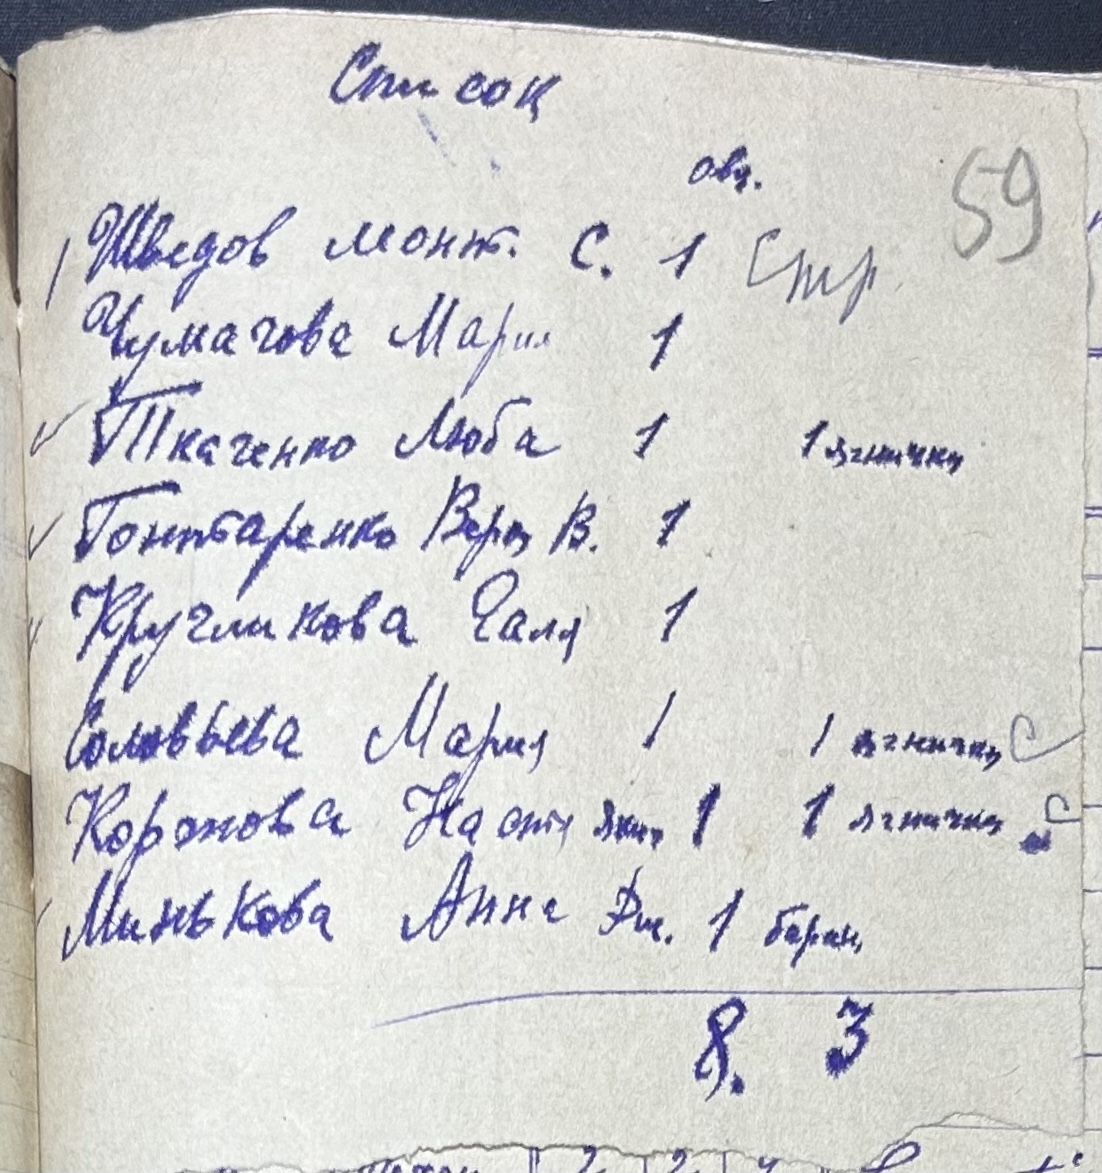 Список
овц.
59
Шведов Монт. С. 1 Стр.
Чумагова Мария 1
Ткаченко Люба 1 1 ягнички
Гонтаренко Вера В. 1
Кругликова Галя 1
Соловьева Мария 1 1 ягничку
Коронова Настя 1 1 ягничку
Минькова Анна 1 баран
8. 3